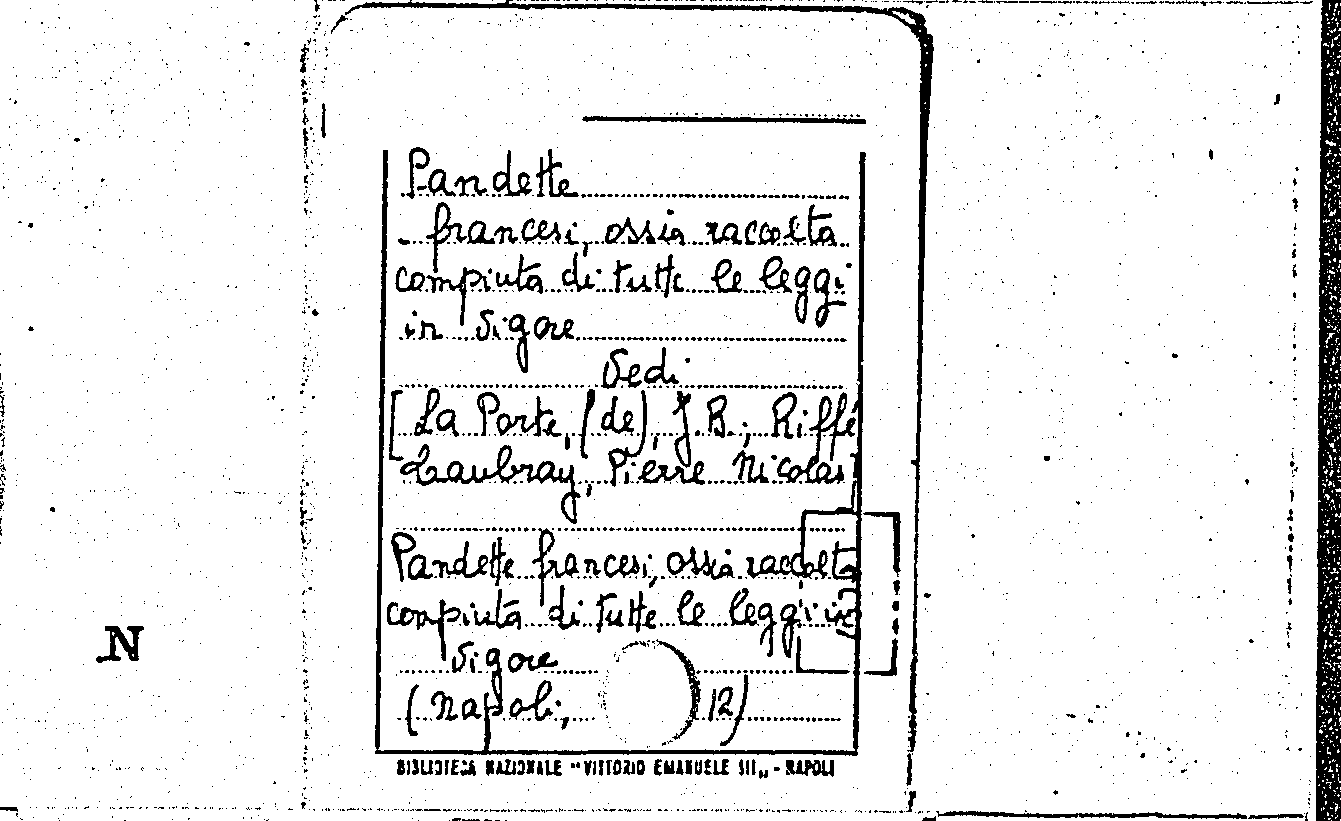 Pandette
- francesi, ossia raccolta
compiuta di tutte le leggi
in vigore
Vedi
[La Porte, (de), J.B.; Riffé
Caubray, Pierre Nicolas]
Pandette francesi, ossia raccolta
compiuta di tutte le leggi in
vigore
(Napoli, 12)
BIBLIOTECA NAZIONALE "VITTORIO EMANUELE III„ - NAPOLI
N